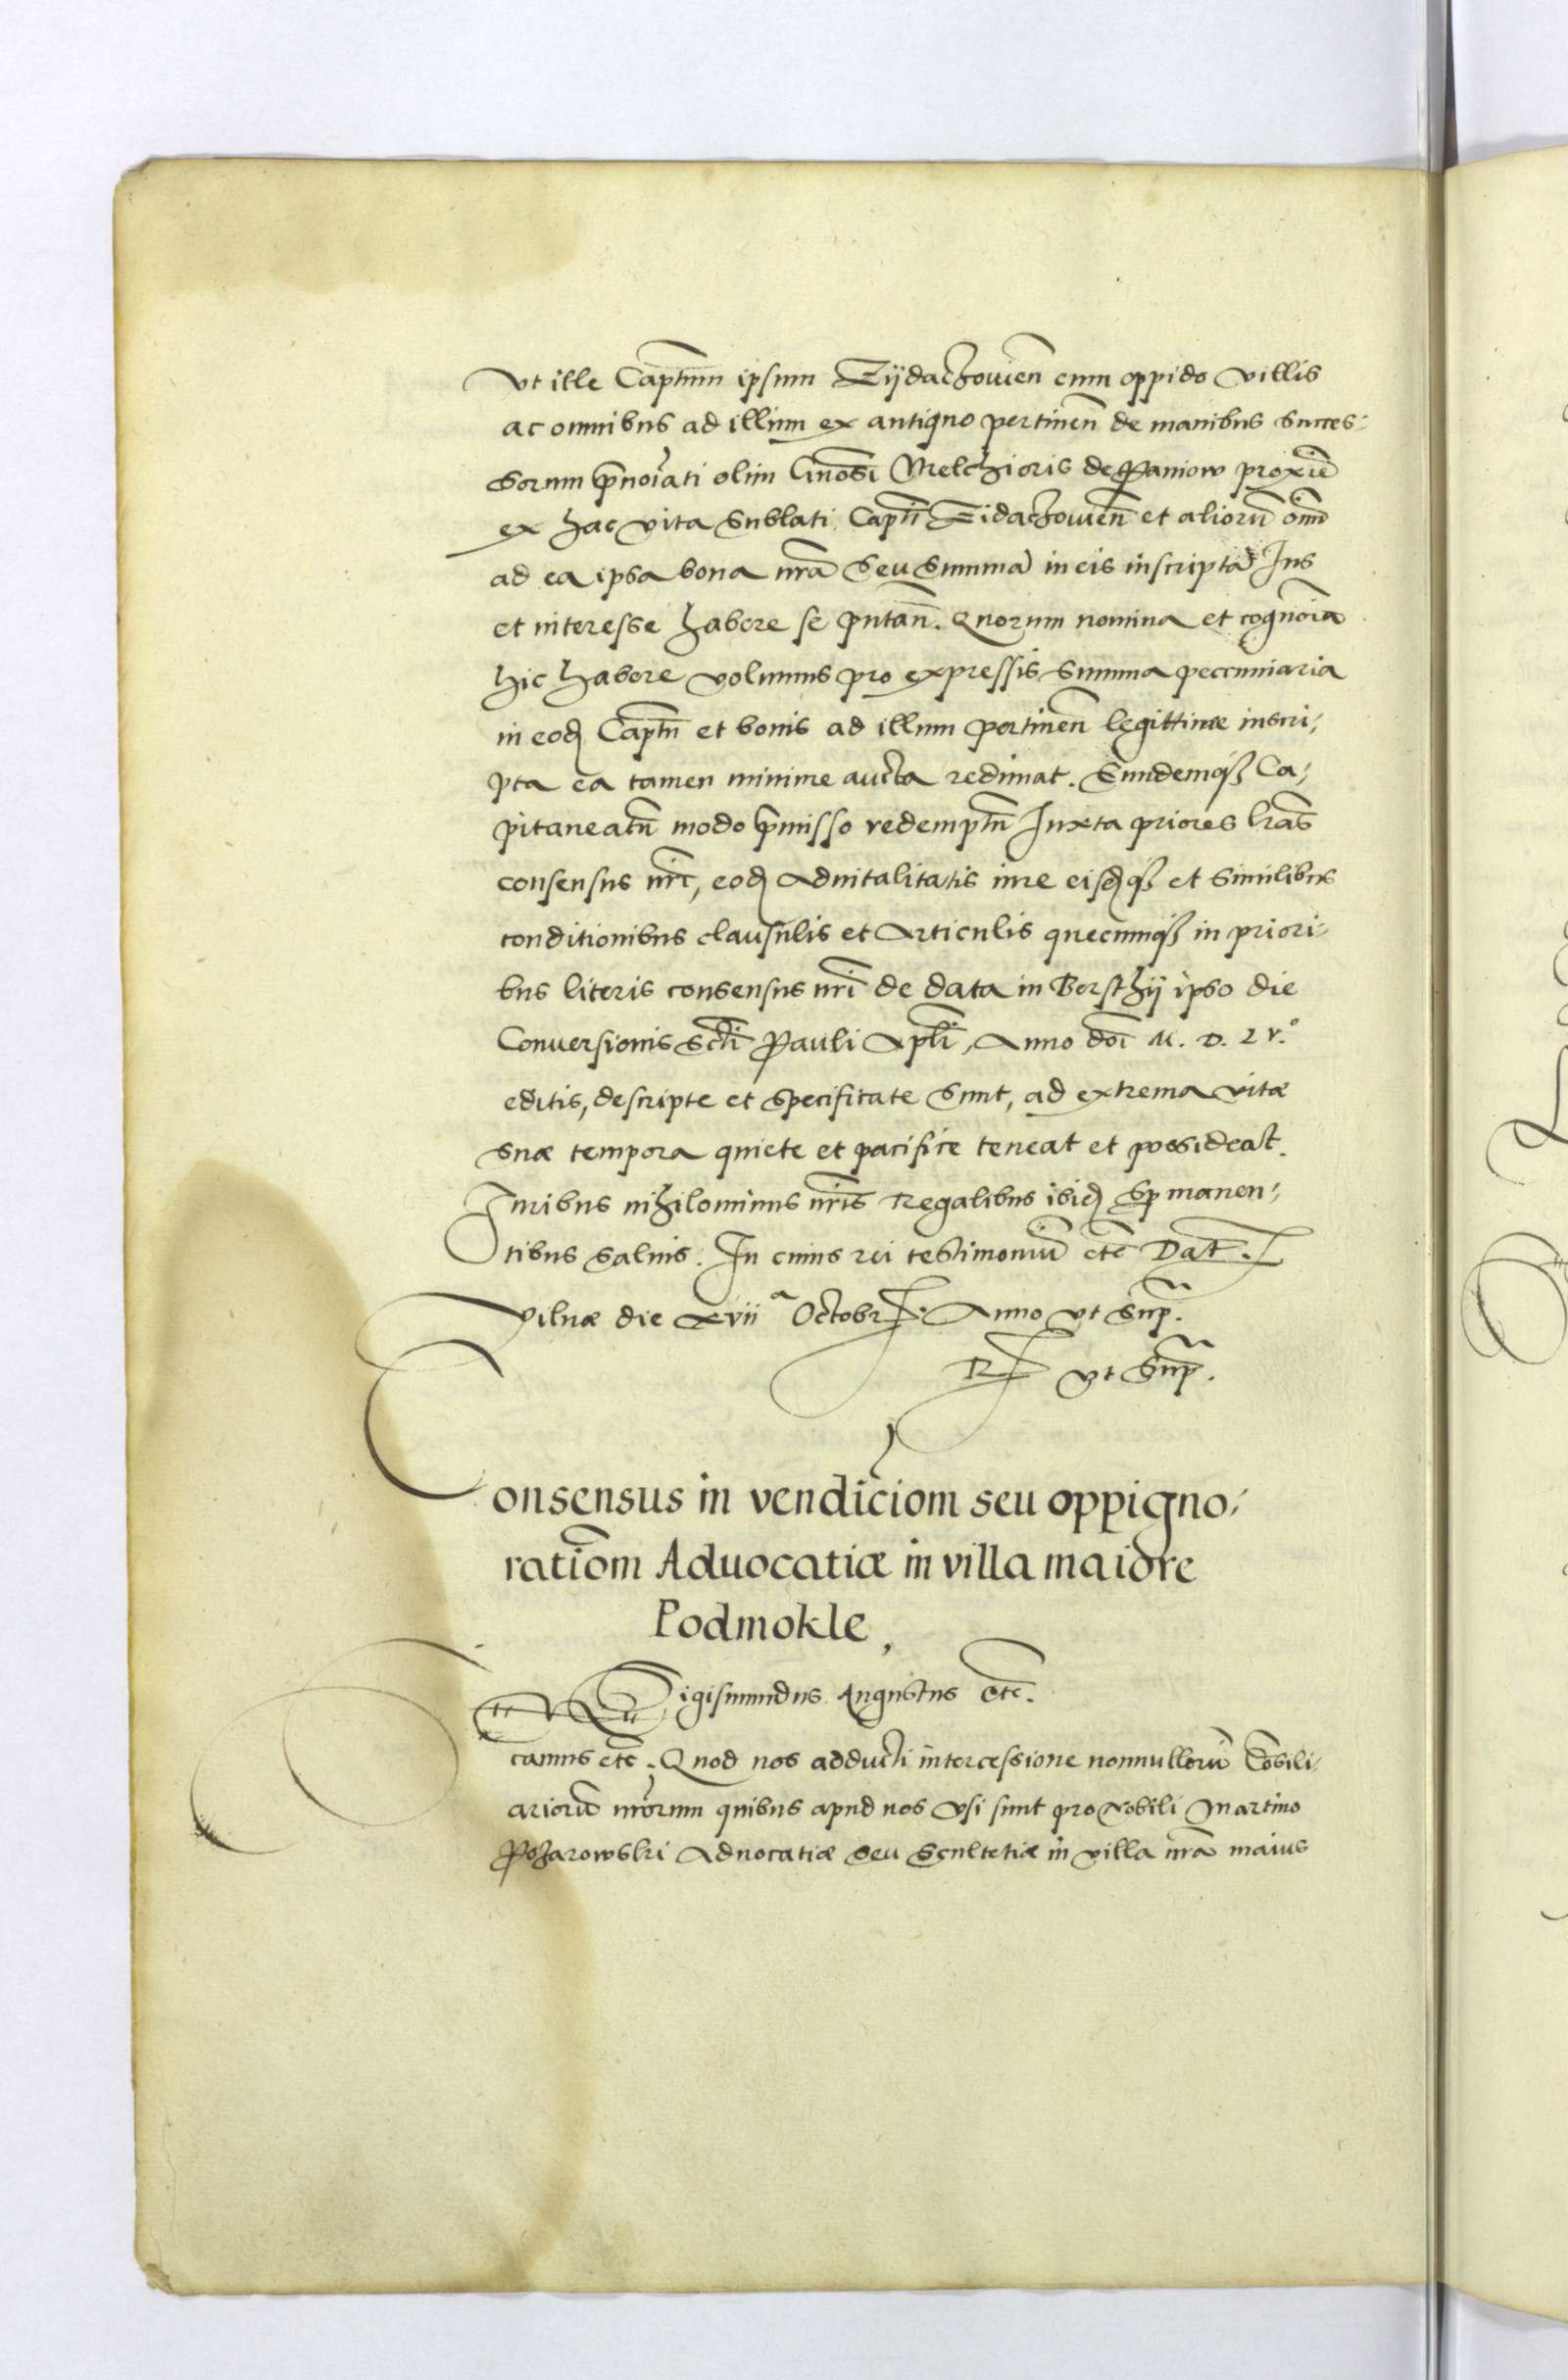 Vt ille Capt̄um ipsum Zÿdaczouien̄ cum oppido villis
ac omnibus ad illum ex antiquo pertinen̄ de manibus Succes-
sorum p̄noīati olim Gn̄osi Melchioris de Paniow proxīe
ex hac vita sublati Capn̄ Zidaczouien̄ et aliorū oīm
ad ea ipsa bona nr̄a Seu Summā in eis inscriptā Ius
et interesse habere se putan̄. Quorum nomina et cognoīa
hic habere volumus pro expressis summa peccuniaria
in eod Captn̄ et bonis ad illum pertinen̄ legittime inscri-
pta ea tamen minime aucta redimat. Eundemqȝ Ca-
pitaneatū modo p̄misso redemptū Iuxta priores lr̄as
consensus nr̄i, eod Aduitalitatis iure eisdqȝ et similibus
conditionibus clausulis et Articulis quecunqȝ in priori-
bus literis consensus nr̄i de data in Bersthÿ ipso die
Conuersionis Scti Pauli Apl̄i, Anno doī M. D. Lv.º
editis, descripte et specificate sunt, ad extrema vitæ
suæ tempora quiete et pacifice teneat et possideat.
Iuribus nihilominus nr̄is Regalibus ibid sp manen-
tibus saluis. In cuius rei testimoniū etc̄ Dat̄.
Vilnæ die xvii a Octobr. Anno vt Sup.
R vt Sup.
Consensus in vendic̄iom seu oppigno-
ratiōm Aduocatiæ in villa maiore
Podmokle,
Sigismundus Augustus etc̄.
camus etc̄. Quod nos adducti intercessione nonnullorū Co̅sili-
ariorū nr̄orum quibus apud nos vsi sunt pro Nobili Martino
Pozarowski Aduocatiæ seu Scultetiæ in villa nr̄a maius